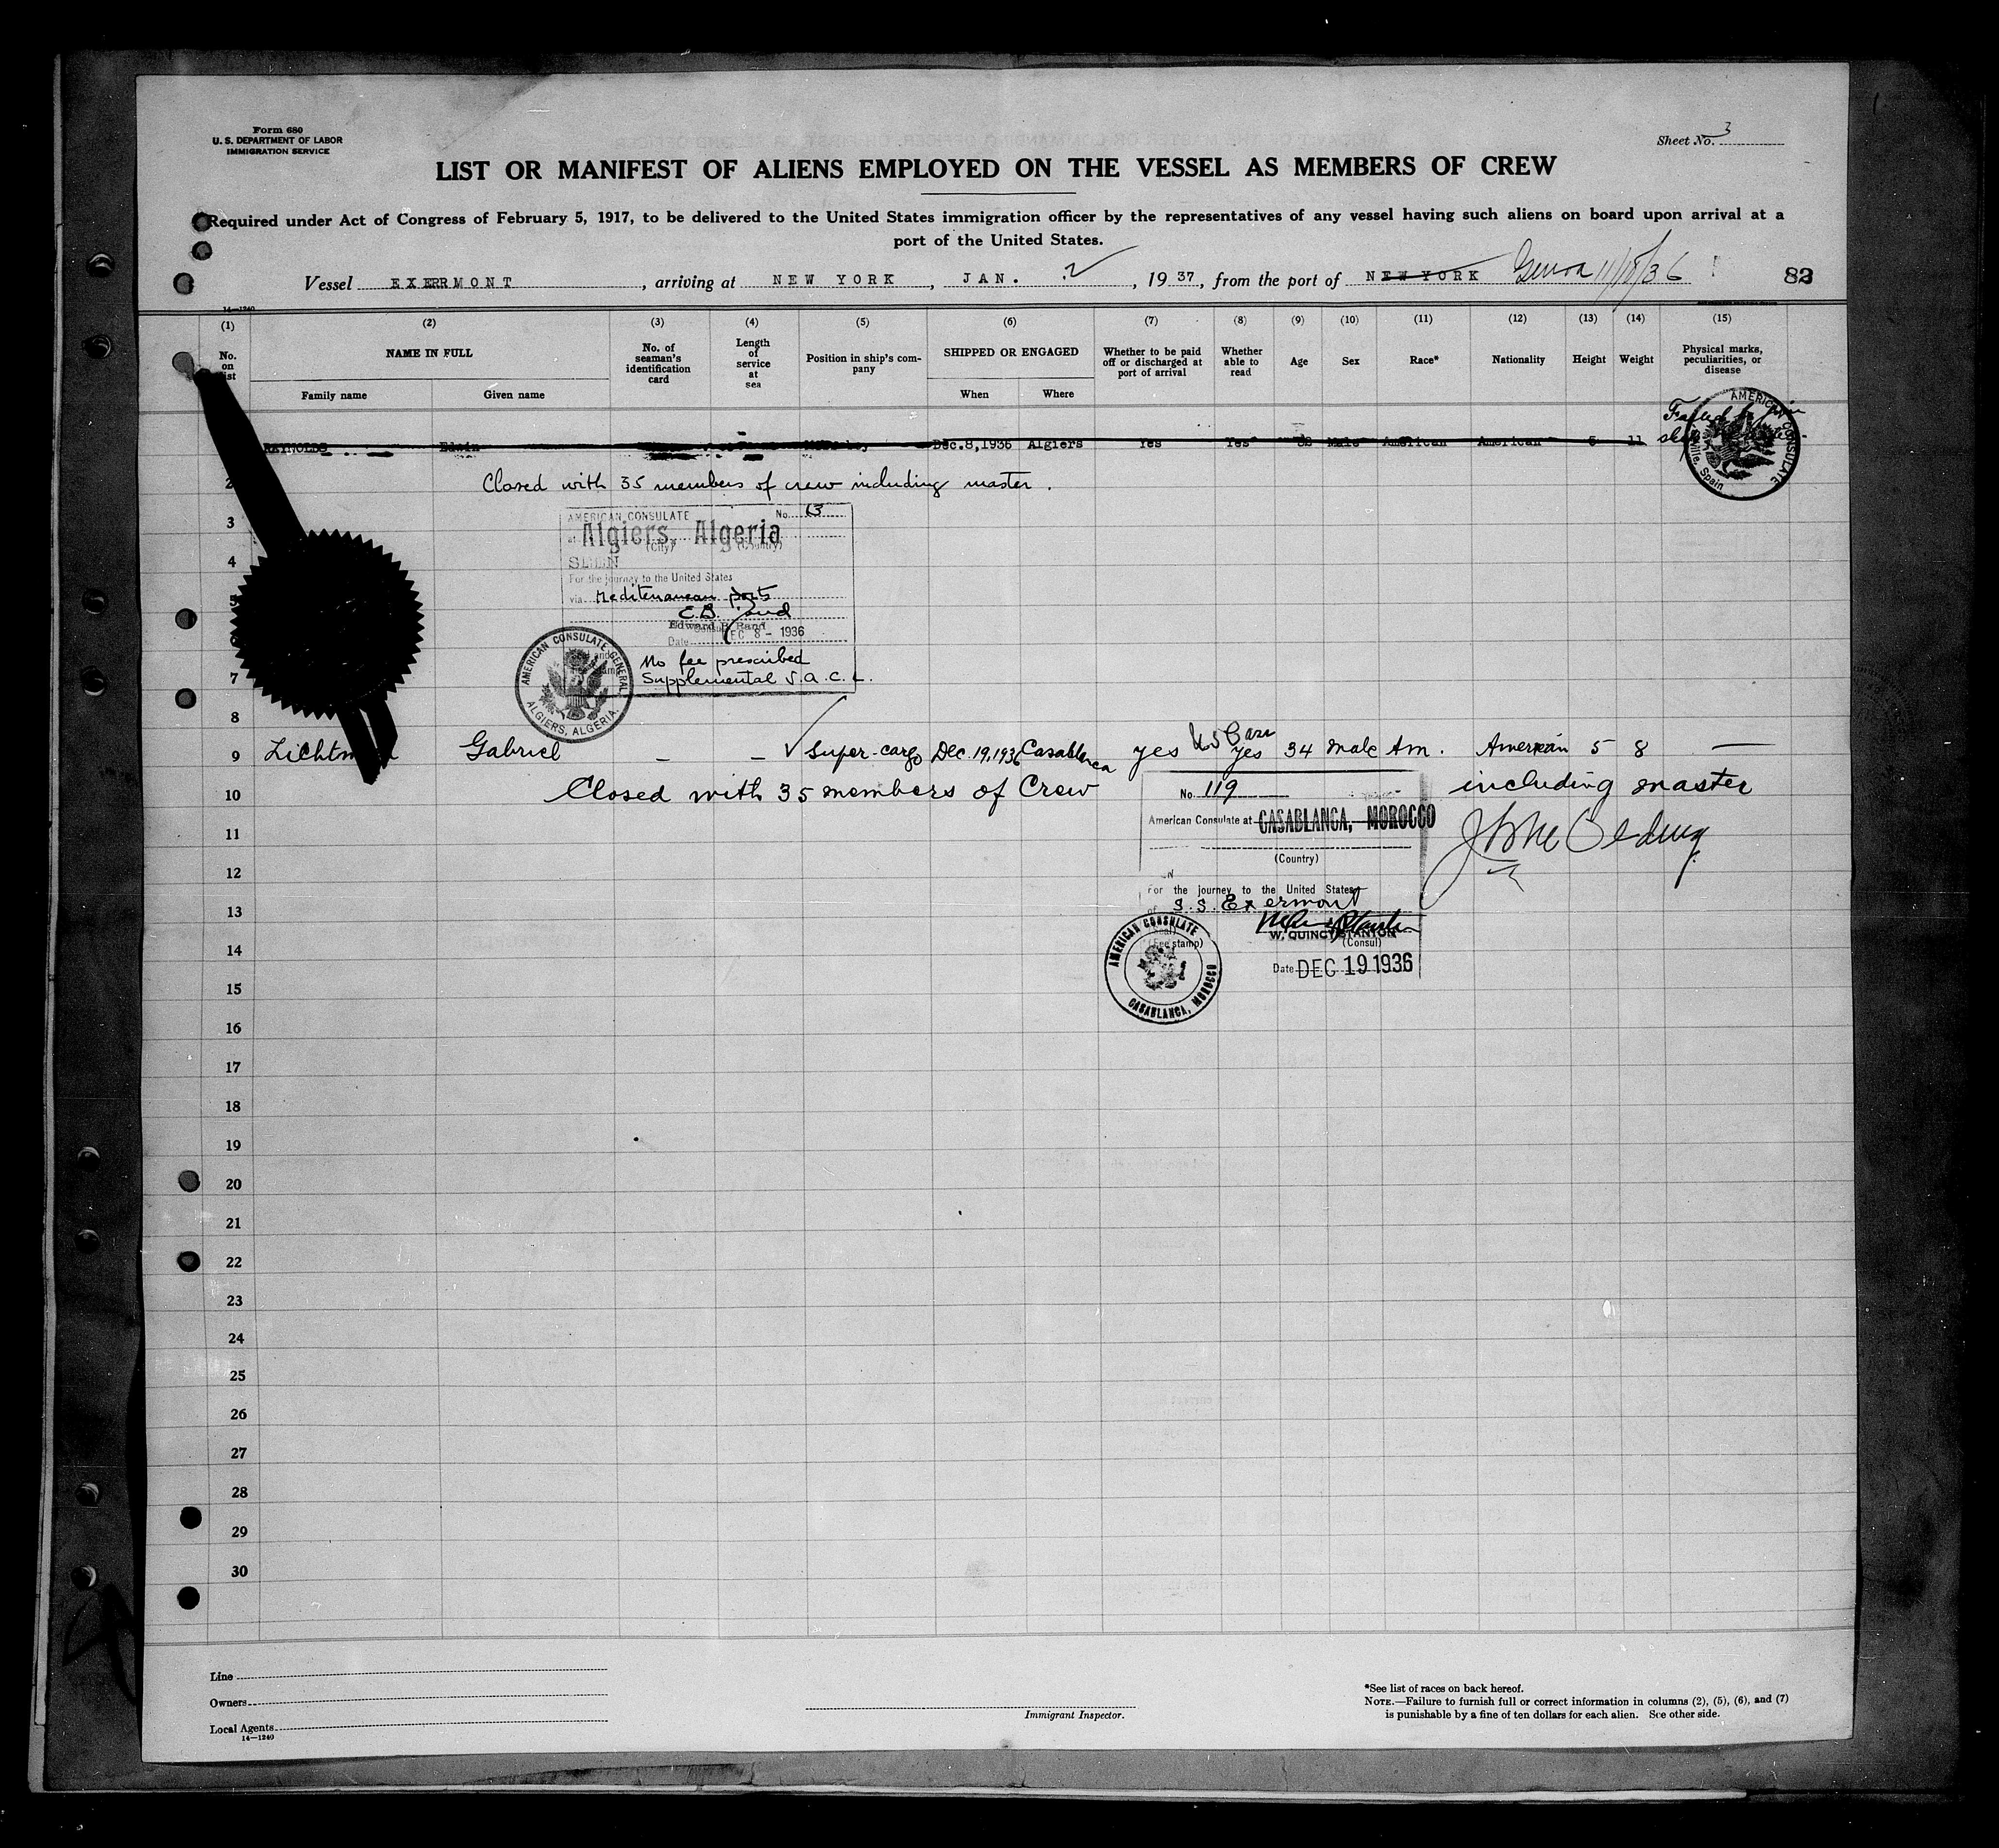 Form 680
U. S. DEPARTMENT OF LABOR
IMMIGRATION SERVICE
Sheet No. 3
LIST OR MANIFEST OF ALIENS EMPLOYED ON THE VESSEL AS MEMBERS OF CREW
Required under Act of Congress of February 5, 1917, to be delivered to the United States immigration officer by the representatives of any vessel having such aliens on board upon arrival at a
port of the United States.
Vessel EXERMONT, arriving at NEW YORK, JAN. 2, 1937, from the port of NEW YORK Genoa 11/18/36 83
14—1240
(1) (2) (3) (4) (5) (6) (7) (8) (9) (10) (11) (12) (13) (14) (15)
No. on list
NAME IN FULL
Family name Given name
No. of seaman's identification card
Length of service at sea
Position in ship's company
SHIPPED OR ENGAGED
When Where
Whether to be paid off or discharged at port of arrival
Whether able to read
Age
Sex
Race*
Nationality
Height
Weight
Physical marks, peculiarities, or disease
REYNOLDS Edwin Dec.8,1936 Algiers Yes Yes Male American American 5 11
Failed to join
AMERICAN CONSULATE
Spain
2 Closed with 35 members of crew including master.
3
AMERICAN CONSULATE No. 63
at Algiers, Algeria
(City) (Country)
4
SEEN
For the journey to the United States
5
via Mediterranean ports
E.B. Rand
Edward B Rand
6
Date DEC 8 - 1936
No fee prescribed
7
Supplemental V.a.c.L.
AMERICAN CONSULATE GENERAL
ALGIERS, ALGERIA.
8
9 Gabriel – – Super-cargo Dec. 19, 1936 Casablanca yes yes 34 male Am. American 5 8 —
10 Closed with 35 members of Crew including master
No. 119
11
American Consulate at CASABLANCA, MOROCCO
(Country)
12
For the journey to the United States
S.S. Exermont
13
W. QUINCY STANTON
(Consul)
(Fee stamp)
14
Date DEC 19 1936
AMERICAN CONSULATE
CASABLANCA, MOROCCO
15
16
17
18
19
20
21
22
23
24
25
26
27
28
29
30
Line
Owners
Local Agents
14—1240
Immigrant Inspector.
*See list of races on back hereof.
NOTE.—Failure to furnish full or correct information in columns (2), (5), (6), and (7)
is punishable by a fine of ten dollars for each alien. See other side.